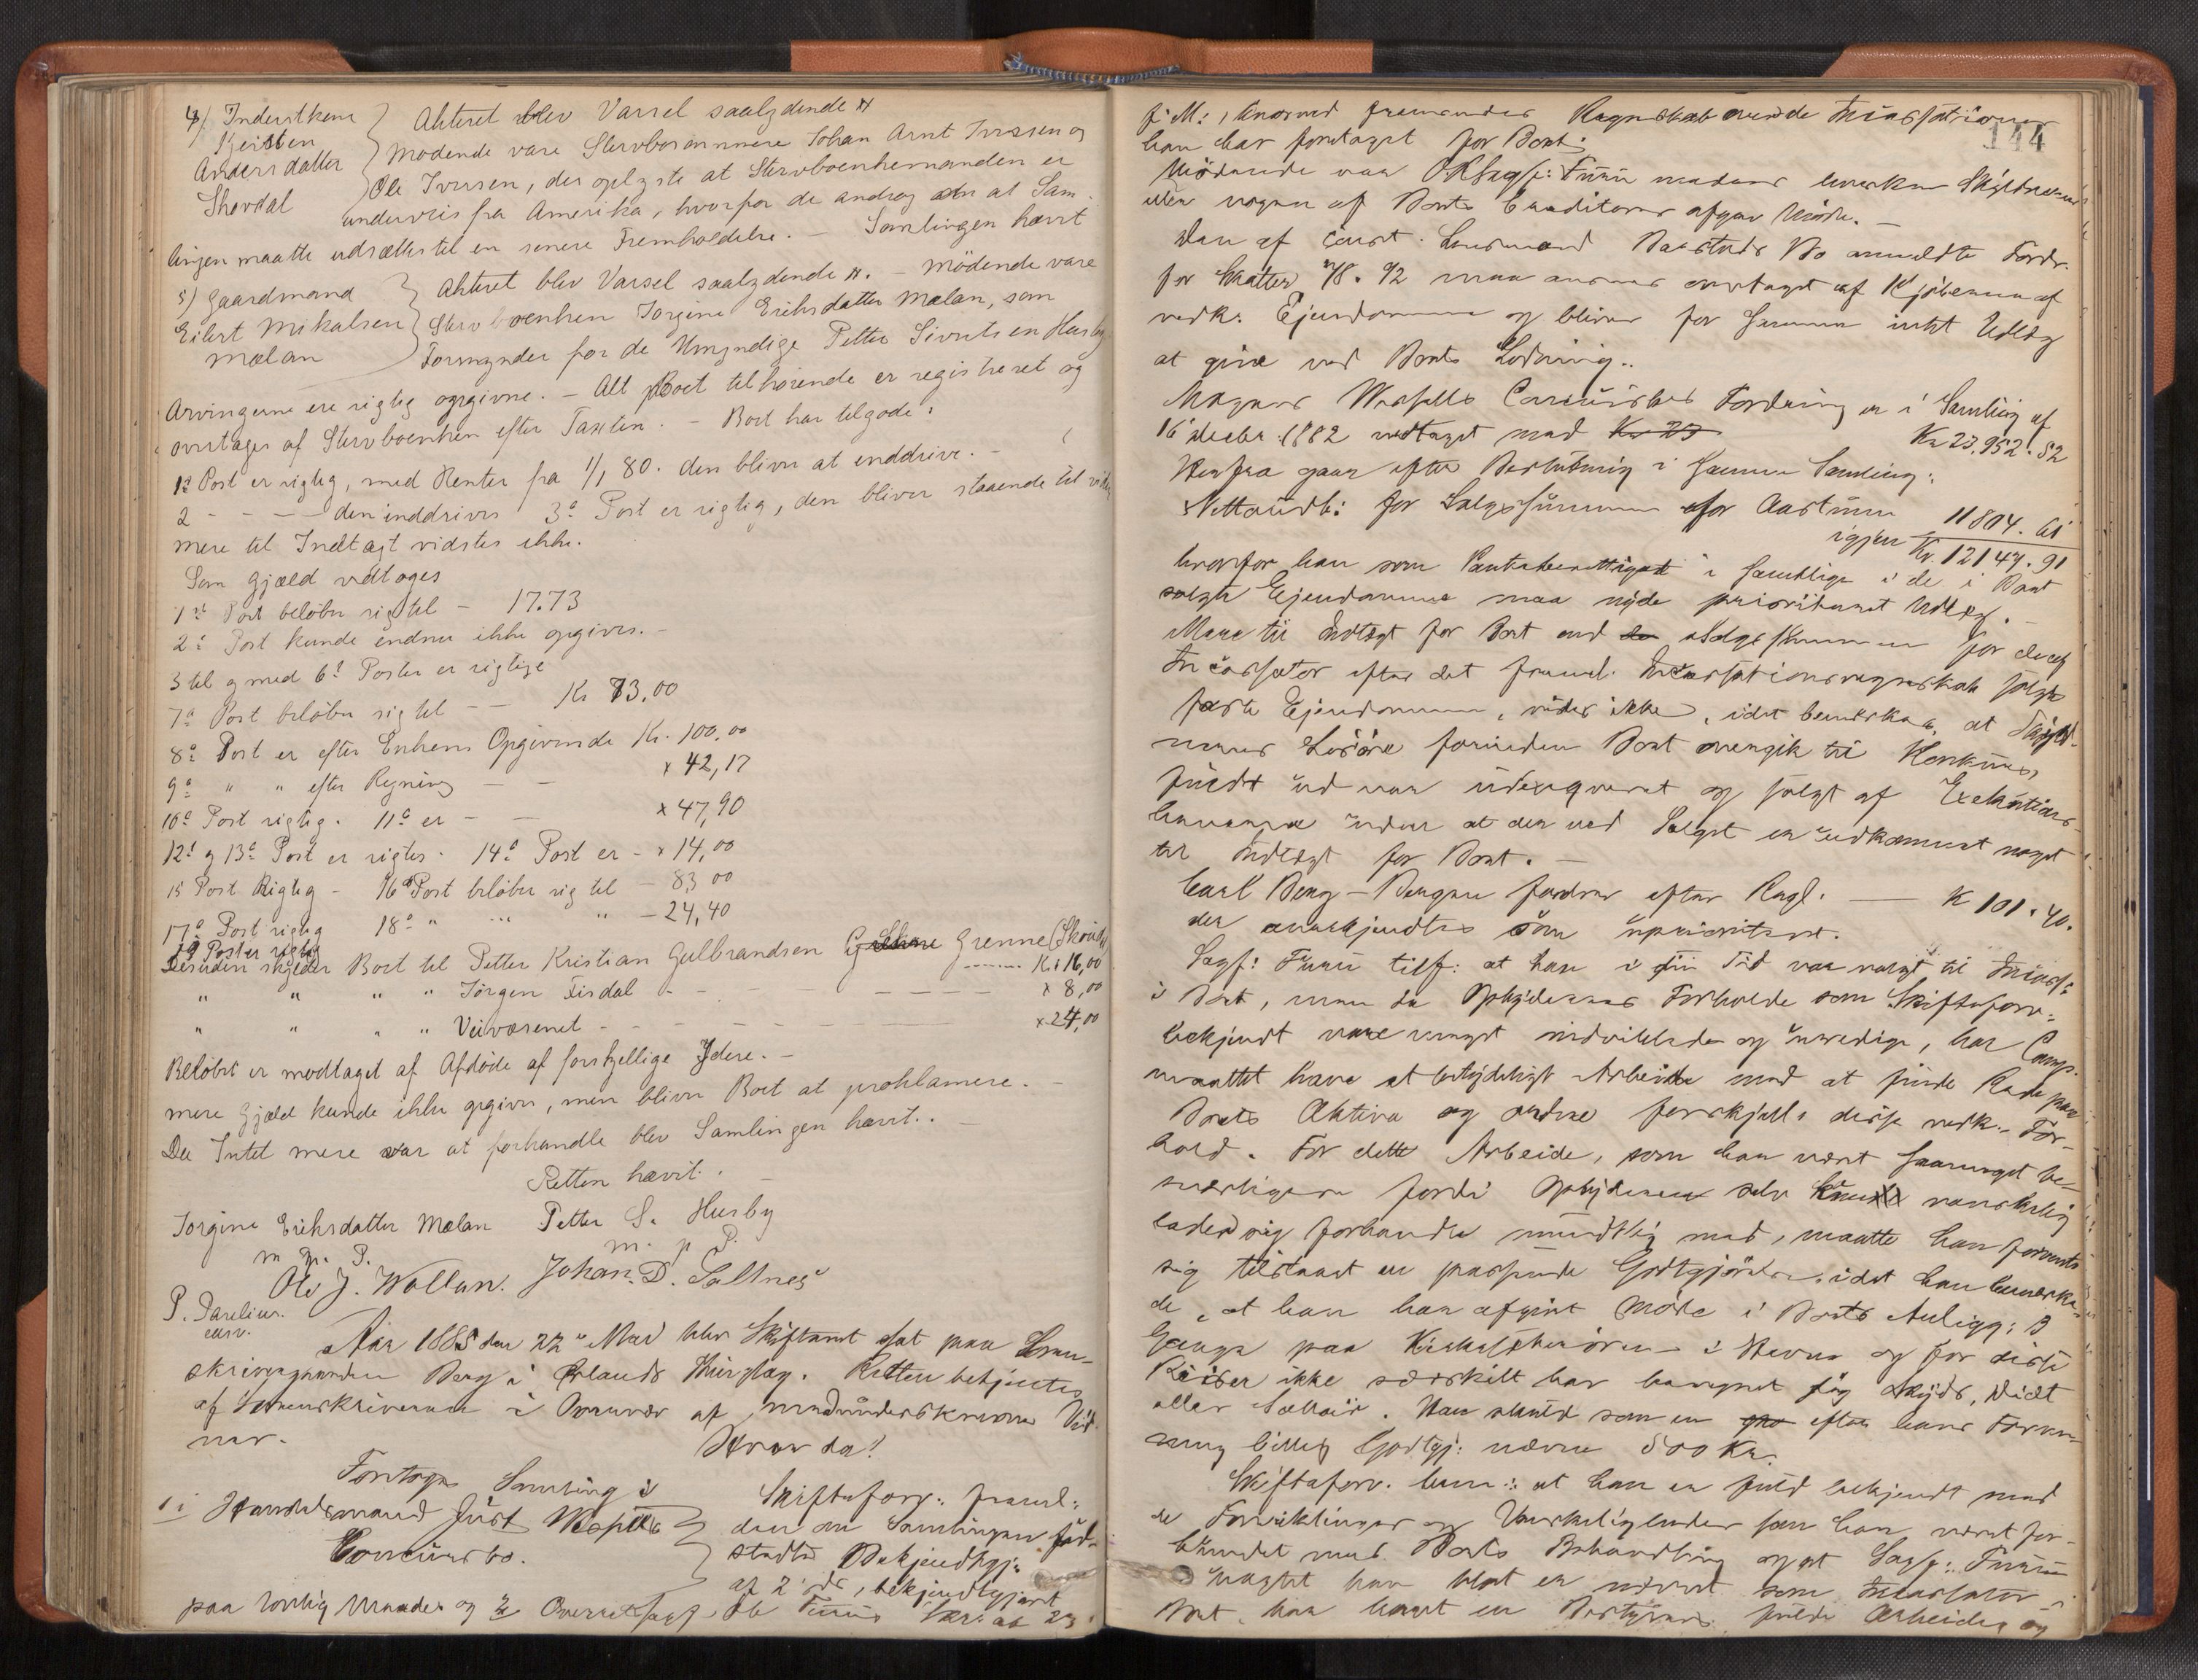 4/. Inderstkone
Kjersten
Andersdatter
Skordal
Akteret blev Varsel saalydende
Mødende vare Stervbosønnerne Johan Arnt Iversen og
Ole Iversen, der oplyste at Stervboenkemanden er
underveis fra Amerika, hvorfor de androg om at Sam-
lingen maatte udsættes til en senere Fremholdelse. — Samlingen hævt
5) Gaardmand
Eilert Mikalsen
Mælan
Akteret blev Varsel saalydende. — Mødende vare
Stervboenken Jorgine Eriksdatter Mælan, som
Formynder for de Umyndige Petter Sivertsen Husby
Arvingerne ere rigtig opgivne. — Alt Boet tilhørende er registreret og
overtages af Stervboenken efter Taxten. — Boet har tilgode:
1ste Post er rigtig, med Renter fra 1/1 80. den bliver at inddrive. —
2 - - - - den inddrives 3die Post er rigtig, den bliver staaende til
mere til Indtægt vidstes ikke.
Som Gjæld vedtoges
1ste Post beløber sig til — 17.73
2: Post kunde endnu ikke opgives. —
3 til og med 6te Poster er rigtige
7de Post beløber sig til — — Kr 73,00
8de Post er efter Enkens Opgivende Kr. 100,00
9de " " efter Regning — — " 42,17
10de Post rigtig. 11te er — — " 47,90
12te og 13de Post er rigtig. 14de Post er — " 14,00
15 Post Rigtig — 16de Post beløber sig til — 83 00
17de Post rigtig 18de " " " — 24,40
19 Poster rigtig
Desuden skylder Boet til Petter Kristian Gulbrandsen Grenne Kr 16,00
" " " " Jörgen Fisdal - - - - - " 8,00
" " " " Veivæsenet - - - - - " 24,00
Beløbet er modtaget af Afdøde af forskjellige Ydere. —
mere Gjæld kunde ikke opgives, men bliver Boet at proklamere. —
Da Intet mere var at forhandle blev Samlingen hævt. —
Retten hævet.
Jorgine Eriksdatter Mælan Petter S. Husby
m. p. P. m. p P.
Ole J. Wollan. Johan. D. Saltnes
P. Parelius.
Aar 1885 den 22de Mai blev Skifteret sat paa Soren-
skrivergaarden Berg i Ørlands Thinglag. Retten betjentes
af Sorenskriveren i Overvær af medunderskrevne Vid-
ner. Hvor da!
Foretoges Samling i
1: Handelsmand Just
Concursbo.
Skifteforv: freml:
den om Samlingen
Bekjendtgj:
af 2 , bekjendtgjort
paa lovlig Maade og Overretssagf. Ole
144
f: M: hvorved fremsendes Regnskab over de Incassationer
han har foretaget for Boet.
Mødende var ORsagf: uden
uden nogen af Boets Creditorer afgav Møde. —
Den af const. Lensmand Bo anmeldte Fordr.
for Skatter maa ansees overtaget af Kjøberen af
vedk. Ejendomme og bliver for samme intet Udlæg
at give ved Boets Slutning.
Fordring er i Samling af
16 Decbr. 1882 vedtaget med Kr 23.952.52
Herfra gaar efter Beslutning i samme Samling:
Nettoudb: for Salgssummen for 11804.61
igjen Kr. 12147.91
hvorfor han som Panteberettiget i samtlige i de i Boet
solgte Ejendomme maa nyde prioriteret Udlæg.
Mere til Indtægt for Boet end Salgssummen for de af
Incassator efter det freml. Incassationsregnskab solgte
faste Ejendomme, vides ikke, idet bemærkes, at
Løsøre forinden Boet overgik til Konkurs,
fuldt ud var udexequeret og solgt af Exekutions-
haverne uden at der ved Salget er udkommet noget
til Indtægt for Boet. —
Carl Berg — Bergen fordrer efter Regl. — K 101.40.
der anerkjendtes som uprioriteret.
Sagf: tilf: at han i sin Tid var valgt til Incass:
i Boet, men da Forholde som Skifteforv.
bekjendt vare meget indviklede og uredige, har Comp.
maattet have et betydeligt Arbeide med at finde Rede paa
Boets Aktiva og andre forskjell: disse vedk. For-
hold. For dette Arbeide, som har været saameget be-
sværligere fordi selv vanskelig
lader sig forhandle mundtlig med, maatte han forvente
sig tilstaaet en passende Godtgjørelse, idet han bemærke-
de, at han har afgivt Møde i Boets Anligg: 3
Gange paa i og for disse
Reiser ikke særskilt har beregnet sig Skyds, Diæt
eller Sallair. Han skulde som en efter hans For-
mening billig Godtgj: nævne 500 Kr.
Skifteforv. bem: at han er fuld bekjendt med
de Forviklinger og Vanskeligheder som har været for-
bundet med Boets Behandling og at Sagf:
uagtet han blot er nævnt som Incassator i
Boet har havt en Bestyrers fulde Arbeide og